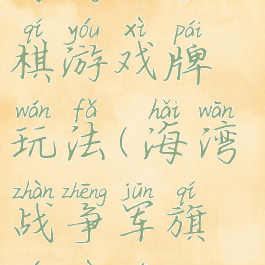 qí yóu xì pái
棋游戏牌
wán fǎ hǎi wān
玩法(海湾
zhàn zhēng jūn qí
战争军旗